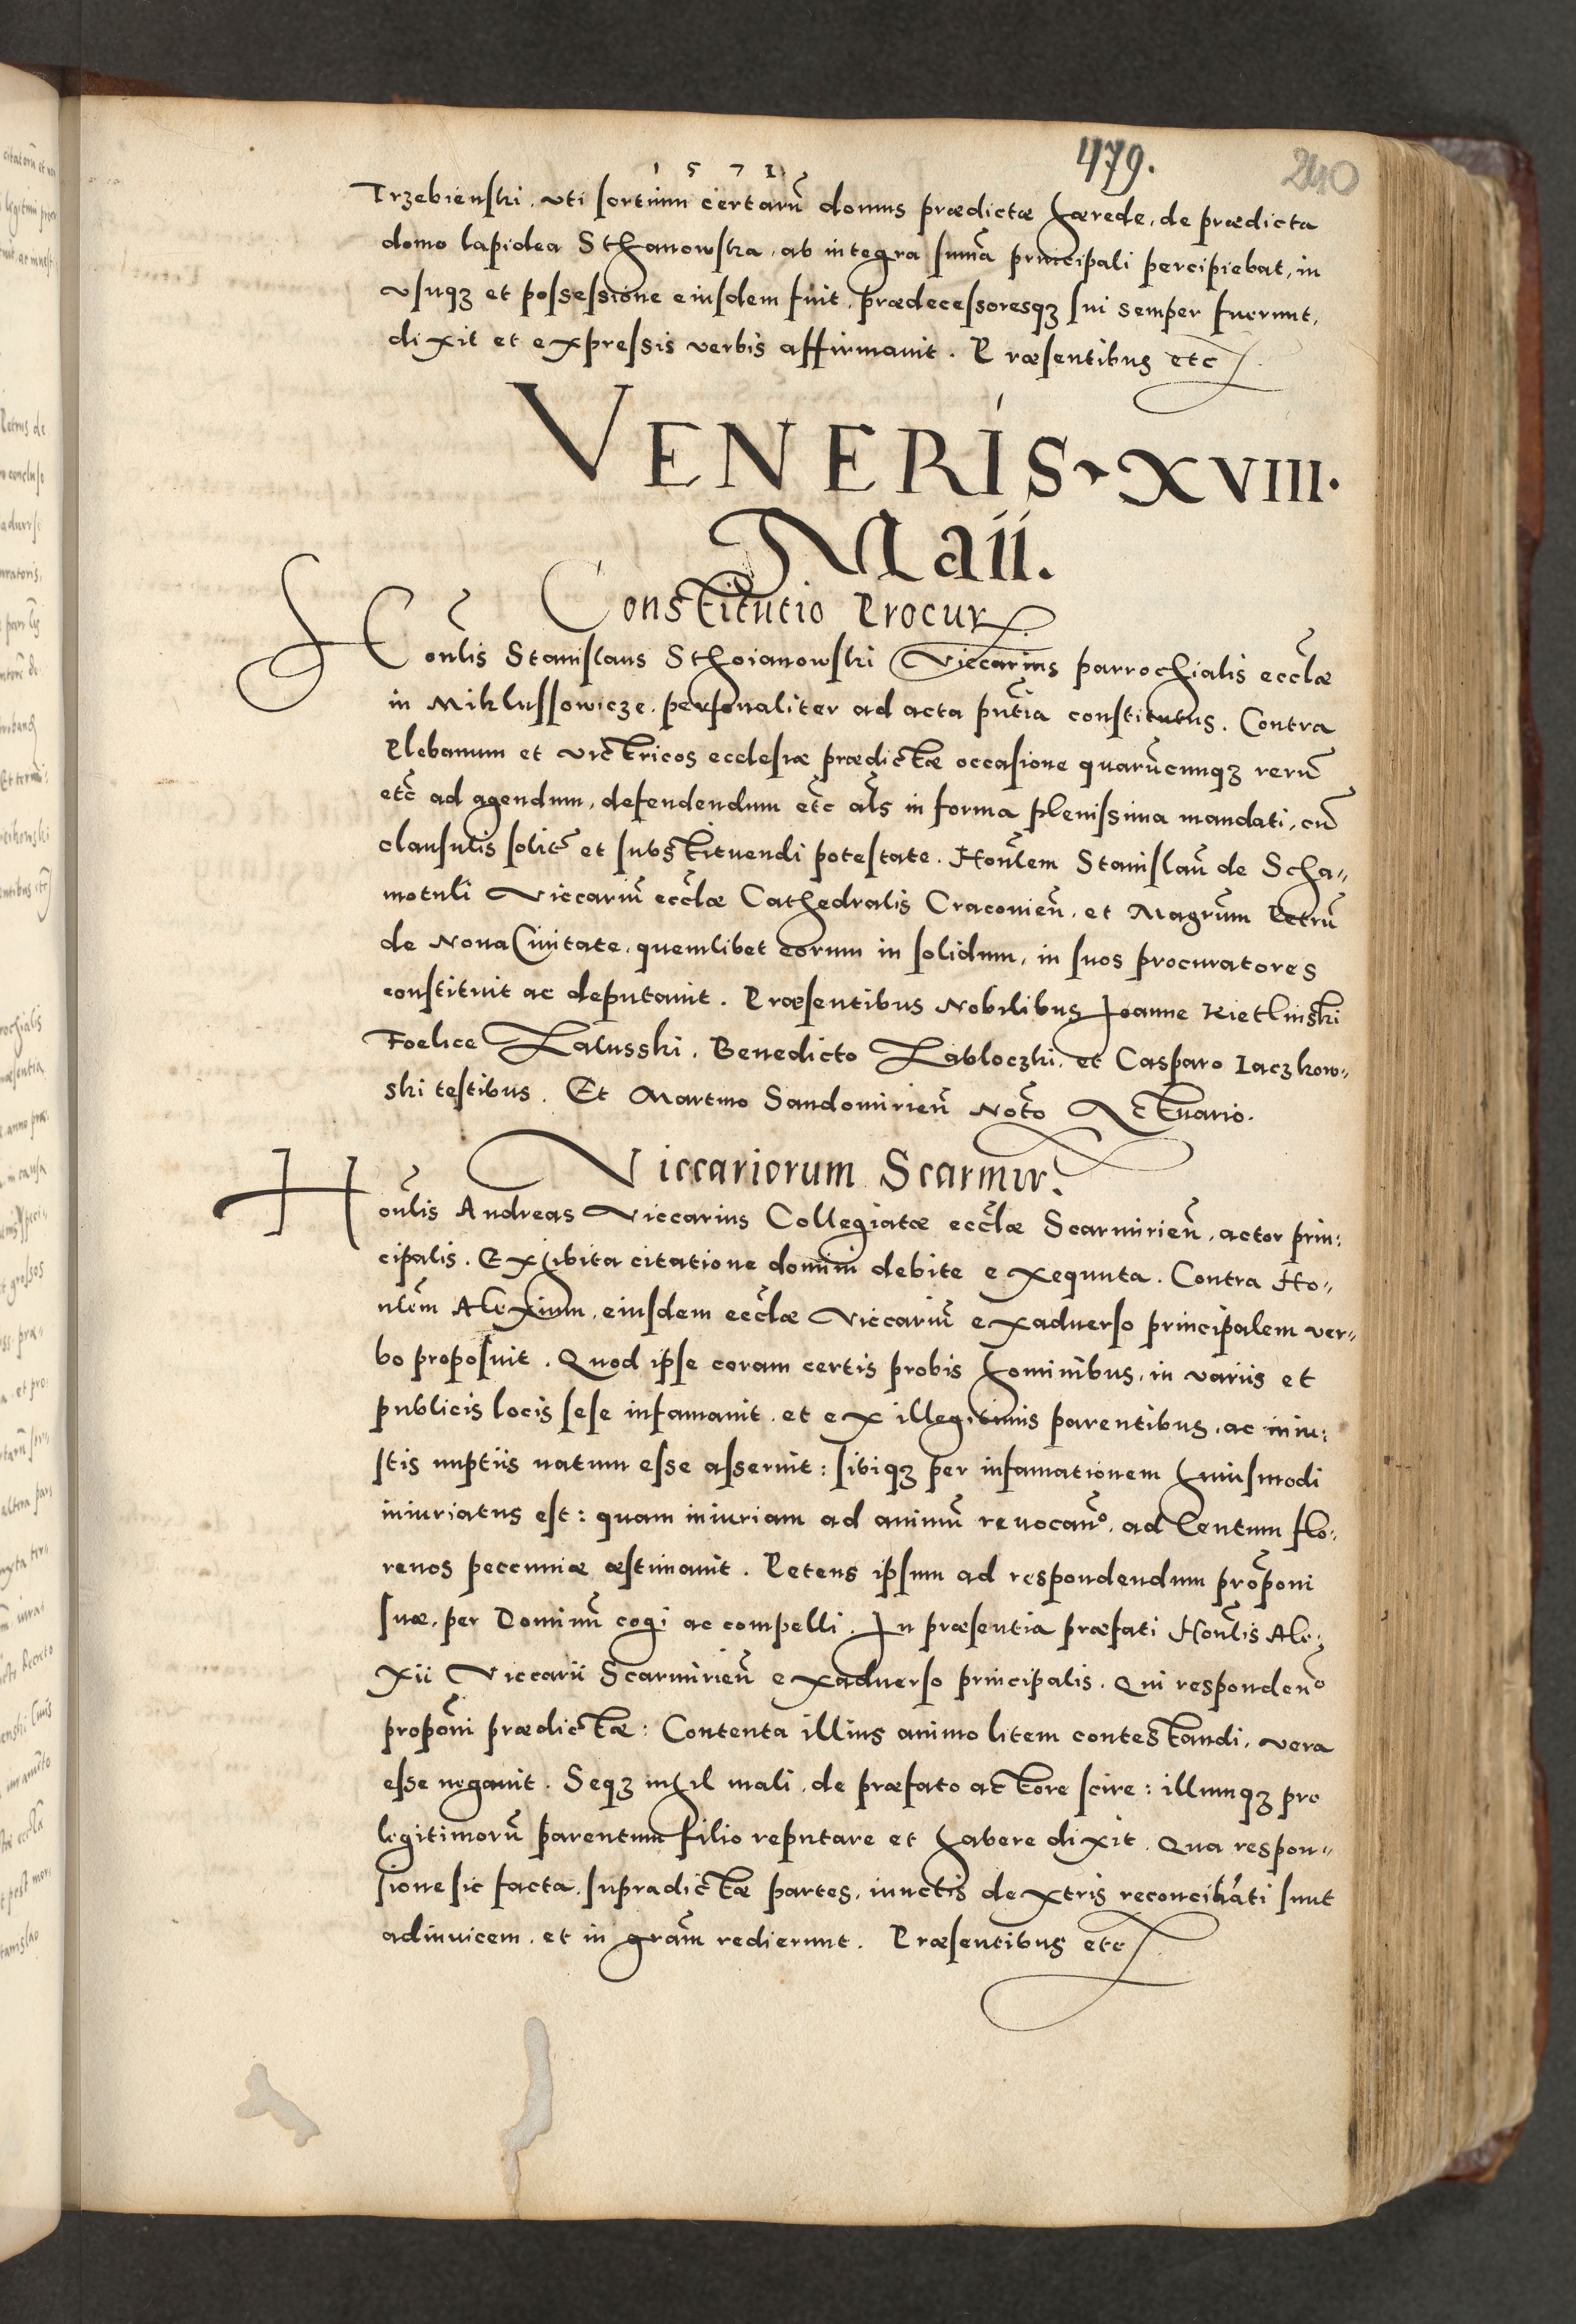 1571
479.
240
Trzebienski, vti sortium certarũ domus prædictæ hærede, de prædicta
domo lapidea Sthanowska, ab integra sum̃a principali percipiebat, in
vsuq3 et possessione eiusdem fuit, prædecessoresq3 sui semper fuerunt,
dixit et expressis verbis affirmauit. Præsentibus etc
VENERIS XVIII.
Maii.
Constitutio Procur
Honlis Stanislaus Sthoianowski Viccarius parrochialis eccl̃æ
in Miklussowicze, personaliter ad acta pñtia constitutus. Contra
Plebanum et victricos ecclesiæ prædictæ occasione quarũcunq3 rerũ
etc̃ ad agendum, defendendum etc̃ al̃s in forma plenissima mandati, cũ
clausulis solit̃ et substituendi potestate. Hon̄lem Stanislaũ de Scha„
motuli Viccariũ eccl̃æ Cathedralis Cracovień, et Magr̃um Petrũ
de Noua Ciuitate, quemlibet eorum in solidum, in suos procuratores
constituit ac deputauit. Præsentibus Nobilibus Joanne Kietlinski
Foelice Zalusski, Benedicto Zabloczki, et Casparo Iaczkow„
ski testibus. Et Martino Sandomirieñ Not̃o Actuario.
Viccariorum Scarmir.
Hon̄lis Andreas Viccarius Collegiatæ eccl̃æ Scarmirieñ, actor prin:
cipalis. Exhibita citatione domini debite exequuta. Contra Ho„
nl̃em Alexium, eiusdem eccl̃æ Viccariũ exaduerso principalem ver„
bo proposuit. Quod ipse coram certis probis hominibus, in variis et
publicis locis sese infamauit, et ex illegitimis parentibus, ac iniu:
stis nuptiis natum esse asseruit: sibiq3 per infamationem huiusmodi
iniuriatus est: quam iniuriam ad animũ reuocañ, ad Centum flo„
renos peccuniæ æstimauit. Petens ipsum ad respondendum prop̃oni
suæ, per Dominũ cogi ac compelli. In præsentia præfati Hon̄lis Ale„
xii Viccarii Scarmirieñ exaduerso principalis. Qui respondeñ
prop̃oni prædictæ: Contenta illius animo litem contestandi, vera
esse negauit. Seq3 nihil mali, de præfato actore scire: illumq3 pro
legitimorũ parentum filio reputare et habere dixit. Qua respon„
sione sic facta, supradictæ partes, iunctis dextris reconciliati sunt
adinuicem, et in gram̃ redierunt. Præsentibus etc